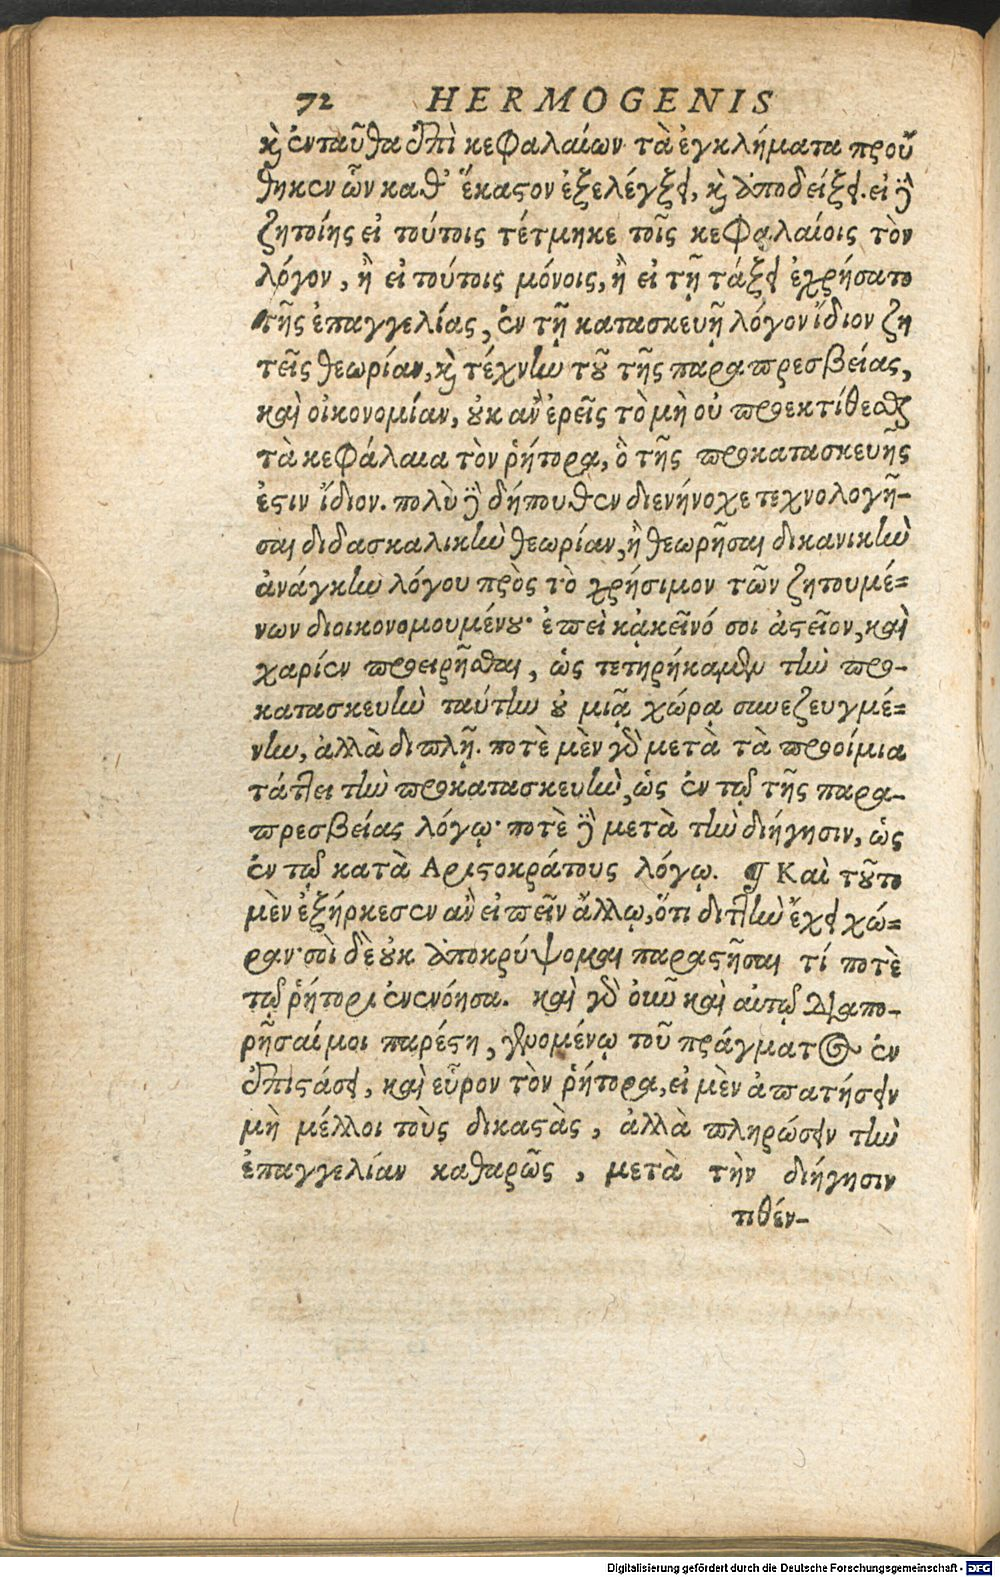 72 HERMOGENIS
καὶ ἐνταῦθα ἐπὶ κεφαλαίων τὰ ἐγκλήματα προὔ
θηκεν ὧν καθ' ἕκαστον ἐξελέγξει, καὶ ἀποδείξει. εἰ δὲ
ζητοίης εἰ τούτοις τέτμηκε τοῖς κεφαλαίοις τὸν
λόγον, ἢ εἰ τούτοις μόνοις, ἢ εἰ τῇ τάξει ἐχρήσατο
τῆς ἐπαγγελίας, ἐν τῇ κατασκευῇ λόγον ἴδιον ζη
τεῖς θεωρίαν, καὶ τέχνην τοῦ τῆς παραπρεσβείας,
καὶ οἰκονομίαν, οὐκ ἂν ἐρεῖς τὸ μὴ οὐ προεκτίθεσθαι
τὰ κεφάλαια τὸν ῥήτορα, ὃ τῆς προκατασκευῆς
ἐστιν ἴδιον. πολὺ δὲ δήπουθεν διενήνοχε τεχνολογῆ-
σαι διδασκαλικὴν θεωρίαν, ἢ θεωρῆσαι δικανικὴν
ἀνάγκην λόγου πρὸς τὸ χρήσιμον τῶν ζητουμέ=
νων διοικονομουμένου· ἐπεὶ κἀκεῖνό σοι ἀστεῖον, καὶ
χαρίεν προειρῆσθαι, ὡς τετηρήκαμεν τὴν προ-
κατασκευὴν ταύτην οὐ μιᾷ χώρᾳ συνεζευγμέ=
νην, ἀλλὰ διπλῇ. ποτὲ μὲν γὰρ μετὰ τὰ προοίμια
τάττει τὴν προκατασκευὴν, ὡς ἐν τῷ τῆς παρα-
πρεσβείας λόγῳ· ποτὲ δὲ μετὰ τὴν διήγησιν, ὡς
ἐν τῷ κατὰ Αριστοκράτους λόγῳ. ¶ Καὶ τοῦτο
μὲν ἐξήρκεσεν ἂν εἰπεῖν ἄλλῳ, ὅτι διττὴν ἔχει χώ=
ραν· σοὶ δὲ οὐκ ἀποκρύψομαι παραστῆσαι τί ποτὲ
τῷ ῥήτορι ἐνενόησα. καὶ γὰρ οὖν καὶ αὐτῷ διαπο-
ρῆσαί μοι παρέστη, γενομένῳ τοῦ πράγματος ἐν
ἐπιστάσει, καὶ εὗρον τὸν ῥήτορα, εἰ μὲν ἀπατήσειν
μὴ μέλλοι τοὺς δικαστὰς, ἀλλὰ πληρώσειν τὴν
ἐπαγγελίαν καθαρῶς, μετὰ τὴν διήγησιν
τιθέν-
Digitalisierung gefördert durch die Deutsche Forschungsgemeinschaft - DFG